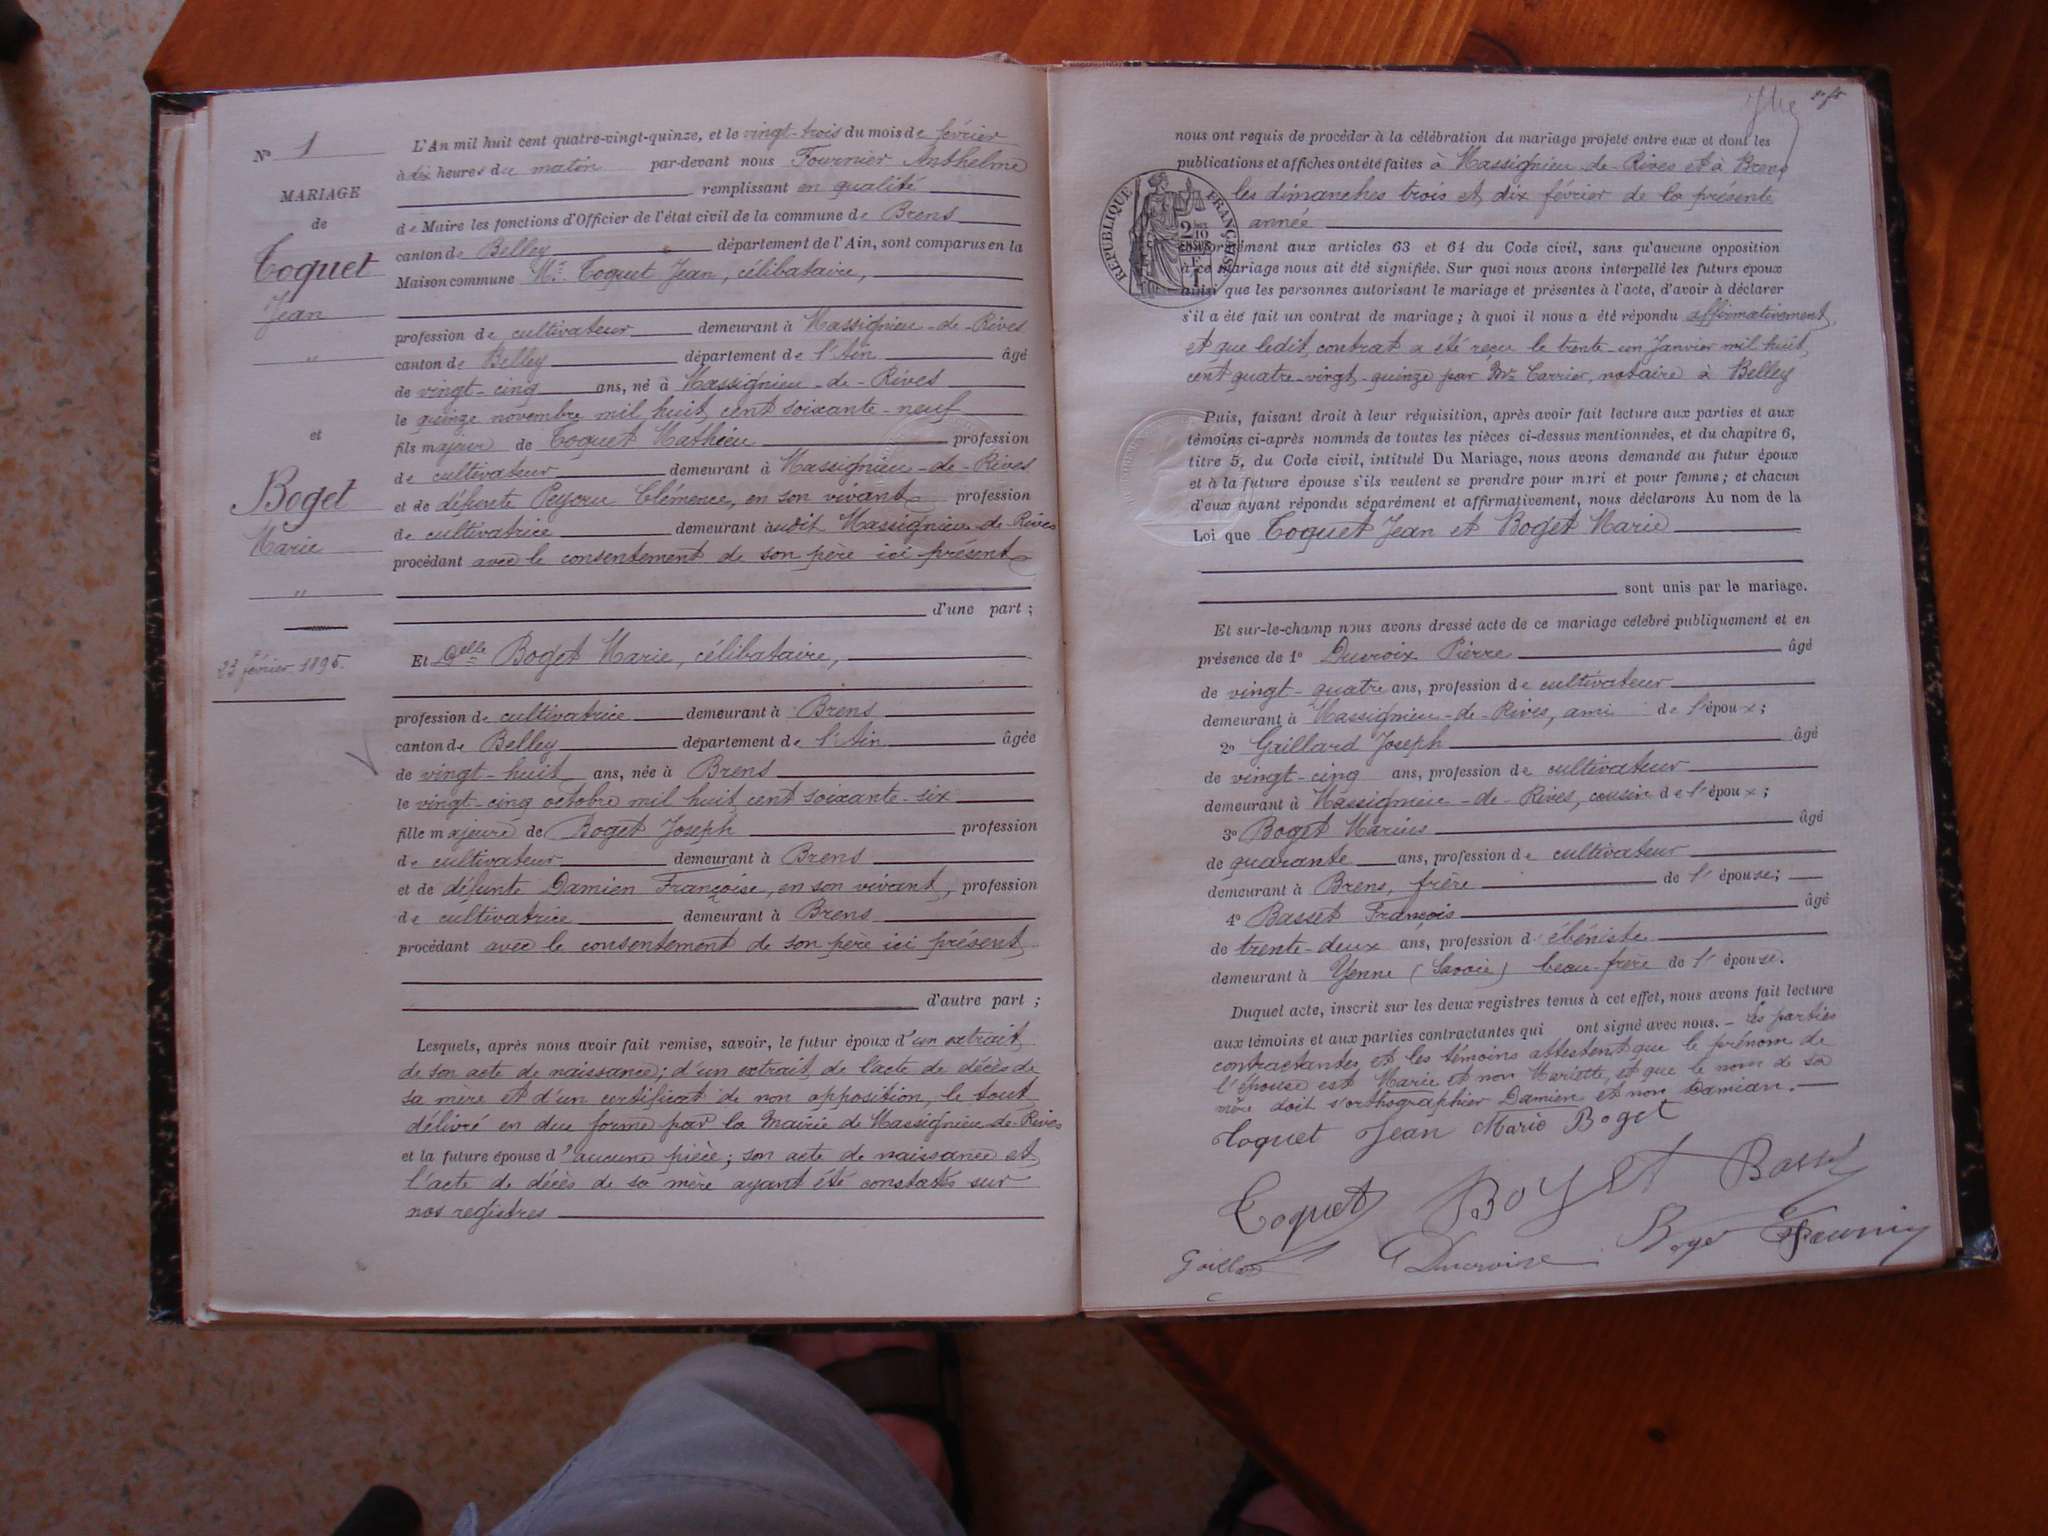 N° 1
MARIAGE
de
Coquet
Jean
"
et
Boget
Marie
"
23 février 1895.
L'An mil huit cent quatre-vingt-quinze, et le vingt-trois du mois de février
à dix heures du matin par-devant nous Fournier Anthelme
remplissant en qualité
de Maire les fonctions d'Officier de l'état civil de la commune de Brens
canton de Belley département de l'Ain, sont comparus en la
Maison commune Mr. Coquet Jean, célibataire,
profession de cultivateur demeurant à Massignieu-de-Rives
canton de Belley département de l'Ain âgé
de vingt-cinq ans, né à Massignieu-de-Rives
le quinze novembre mil huit cent soixante-neuf
fils majeur de Coquet Mathieu profession
de cultivateur demeurant à Massignieu-de-Rives
et de défunte Peycru Clémence, en son vivant profession
de cultivatrice demeurant audit Massignieu-de-Rives
procédant avec le consentement de son père ici présent
d'une part ;
Et Delle Boget Marie, célibataire,
profession de cultivatrice demeurant à Brens
canton de Belley département de l'Ain âgée
de vingt-huit ans, née à Brens
le vingt-cinq octobre mil huit cent soixante-six
fille majeure de Boget Joseph profession
de cultivateur demeurant à Brens
et de défunte Damien Françoise, en son vivant, profession
de cultivatrice demeurant à Brens
procédant avec le consentement de son père ici présent
d'autre part ;
Lesquels, après nous avoir fait remise, savoir, le futur époux d'un extrait
de son acte de naissance; d'un extrait de l'acte de décès de
sa mère et d'un certificat de non opposition, le tout
délivré en due forme par la Mairie de Massignieu-de-Rives
et la future épouse d'aucune pièce; son acte de naissance et
l'acte de décès de sa mère ayant été constatés sur
nos registres
nous ont requis de procéder à la célébration du mariage projeté entre eux et dont les
publications et affiches ont été faites à Massignieu-de-Rives et à Brens
les dimanches trois et dix février de la présente
année
RÉPUBLIQUE FRANÇAISE
conformément aux articles 63 et 64 du Code civil, sans qu'aucune opposition
à ce mariage nous ait été signifiée. Sur quoi nous avons interpellé les futurs époux
ainsi que les personnes autorisant le mariage et présentes à l'acte, d'avoir à déclarer
s'il a été fait un contrat de mariage ; à quoi il nous a été répondu affirmativement
et que ledit contrat a été reçu le trente-un Janvier mil huit
cent quatre-vingt-quinze par Me Carrier, notaire à Belley
Puis, faisant droit à leur réquisition, après avoir fait lecture aux parties et aux
témoins ci-après nommés de toutes les pièces ci-dessus mentionnées, et du chapitre 6,
titre 5, du Code civil, intitulé Du Mariage, nous avons demandé au futur époux
et à la future épouse s'ils veulent se prendre pour mari et pour femme ; et chacun
d'eux ayant répondu séparément et affirmativement, nous déclarons Au nom de la
Loi que Coquet Jean et Boget Marie
sont unis par le mariage.
Et sur-le-champ nous avons dressé acte de ce mariage célébré publiquement et en
présence de 1° Ducroix Pierre âgé
de vingt-quatre ans, profession de cultivateur
demeurant à Massignieu-de-Rives, ami de l'époux ;
2° Gaillard Joseph âgé
de vingt-cinq ans, profession de cultivateur
demeurant à Massignieu-de-Rives, cousin de l'époux ;
3° Boget Marius âgé
de quarante ans, profession de cultivateur
demeurant à Brens, frère de l'épouse ;
4° Basset François âgé
de trente-deux ans, profession d'ébéniste
demeurant à Yenne (Savoie) beau-frère de l'épouse.
Duquel acte, inscrit sur les deux registres tenus à cet effet, nous avons fait lecture
aux témoins et aux parties contractantes qui ont signé avec nous. - Les parties
contractantes et les témoins attestent que le prénom de
l'épouse est Marie et non Mariette, et que le nom de sa
mère doit s'orthographier Damien et non Damian.
Coquet Jean Marie Boget
Coquet Boget Basset
Ducroix Boget